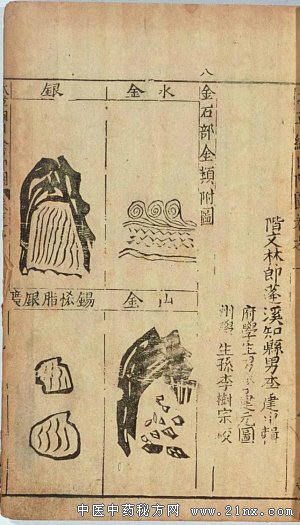 八
階文林郎蓬溪知縣男李建中輯
府學生男李建元圖
州學生孫李樹宗校
金石部金類附圖
水金
銀
山金
錫恡脂銀廣
中医中药秘方网 www.21nx.com